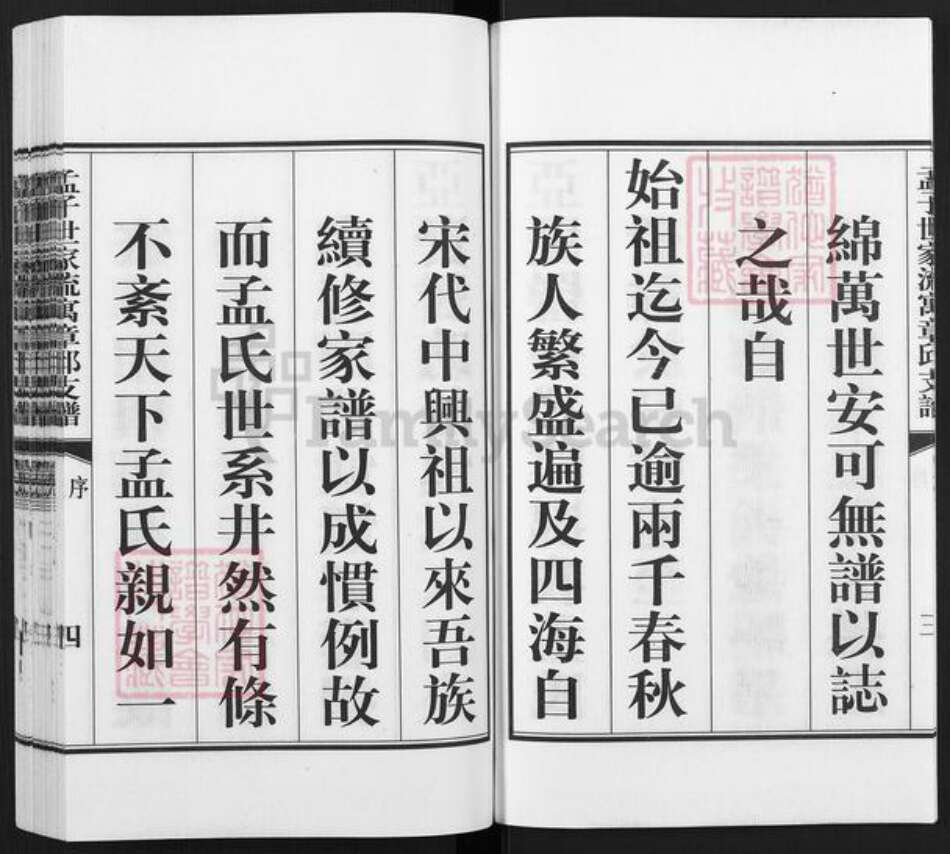 孟子世家流寓章邱支譜
綿萬世安可無譜以誌
之哉自
始祖迄今已逾兩千春秋
族人繁盛遍及四海自
宋代中興祖以來吾族
續修家譜以成慣例故
而孟氏世系井然有條
不紊天下孟氏親如一
孟子世家流寓章邱支譜
序
四
FamilySearch